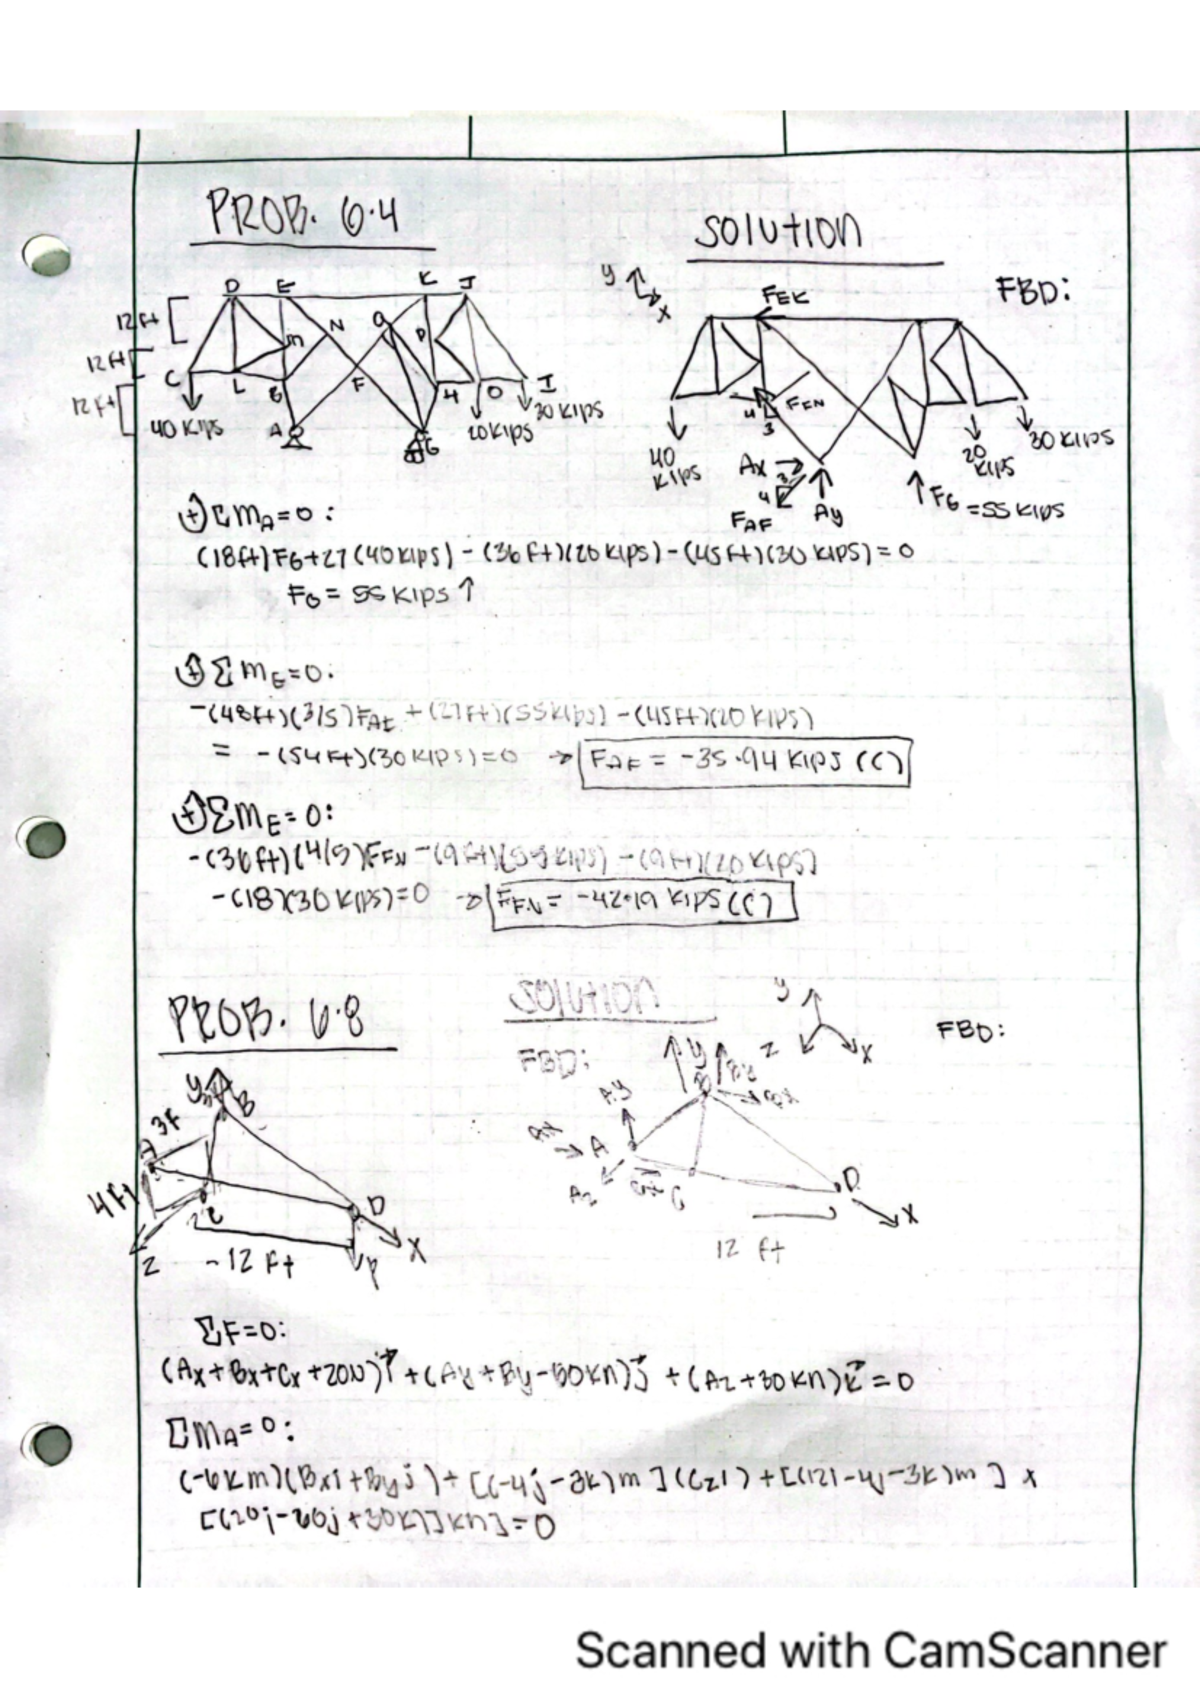 PROB. 6.4
SOLUTION
FBD:
D E K J
12 ft
M N Q P
12 ft
C L B F H O I
12 ft
40 KIPS A G 20 KIPS 30 KIPS
y
x
FEK
4
3
FEN
40 KIPS
20 KIPS
30 KIPS
Ax
3
4
FAF
Ay
FG = 55 KIPS
+ ΣMA = 0 :
(18ft) FG + 27 (40 KIPS) - (36 ft)(20 KIPS) - (45 ft)(30 KIPS) = 0
FG = 55 KIPS ↑
+ ΣME = 0:
-(48ft)(3/5) FAF + (27ft)(55 KIPS) - (45ft)(20 KIPS)
= -(54 ft)(30 KIPS) = 0 → FAF = -35.94 KIPS (C)
+ ΣME = 0:
-(36ft)(4/5) FEN -(9ft)(55 KIPS) - (9ft)(20 KIPS)
-(18)(30 KIPS) = 0 → FEN = -42.19 KIPS (C)
PROB. 6.8
SOLUTION
FBD:
FBD:
y
z
x
y
B
3F
A
4 ft
C
D
z
-12 ft
P
x
y
By
B
Bx
Ay
Ax
A
Az
C
D
x
12 ft
ΣF=0:
(Ax + Bx + Cx + 20N) i + (Ay + By - 60 kn) j + (Az + 30 kn) k = 0
ΣMA = 0:
(-6km)(Bxi + Byj) + [(-4j - 3k) m ] (Czi) + [(12i - 4j - 3k) m ] x
[(20j - 60j + 30k)] kn] = 0
Scanned with CamScanner